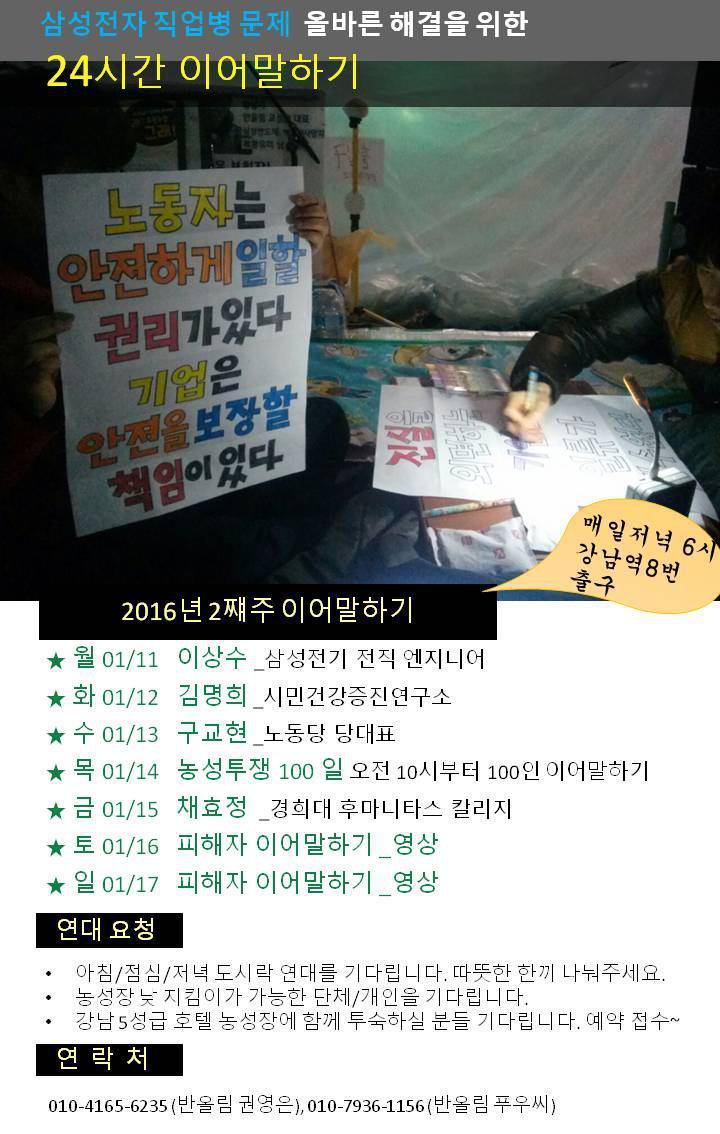 삼성전자 직업병 문제 올바른 해결을 위한
24시간 이어말하기
노동자는
안전하게 일할
권리가 있다
기업은
안전을 보장할
책임이 있다
진실을
외면하는
매일저녁 6시
강남역8번
출구
2016년 2쨰주 이어말하기
★ 월 01/11 이상수 _삼성전기 전직 엔지니어
★ 화 01/12 김명희 _시민건강증진연구소
★ 수 01/13 구교현 _노동당 당대표
★ 목 01/14 농성투쟁 100 일 오전 10시부터 100인 이어말하기
★ 금 01/15 채효정 _경희대 후마니타스 칼리지
★ 토 01/16 피해자 이어말하기 _영상
★ 일 01/17 피해자 이어말하기 _영상
연대 요청
• 아침/점심/저녁 도시락 연대를 기다립니다. 따뜻한 한끼 나눠주세요.
• 농성장 낮 지킴이가 가능한 단체/개인을 기다립니다.
• 강남 5성급 호텔 농성장에 함께 투숙하실 분들 기다립니다. 예약 접수~
연 락 처
010-4165-6235 (반올림 권영은), 010-7936-1156 (반올림 푸우씨)